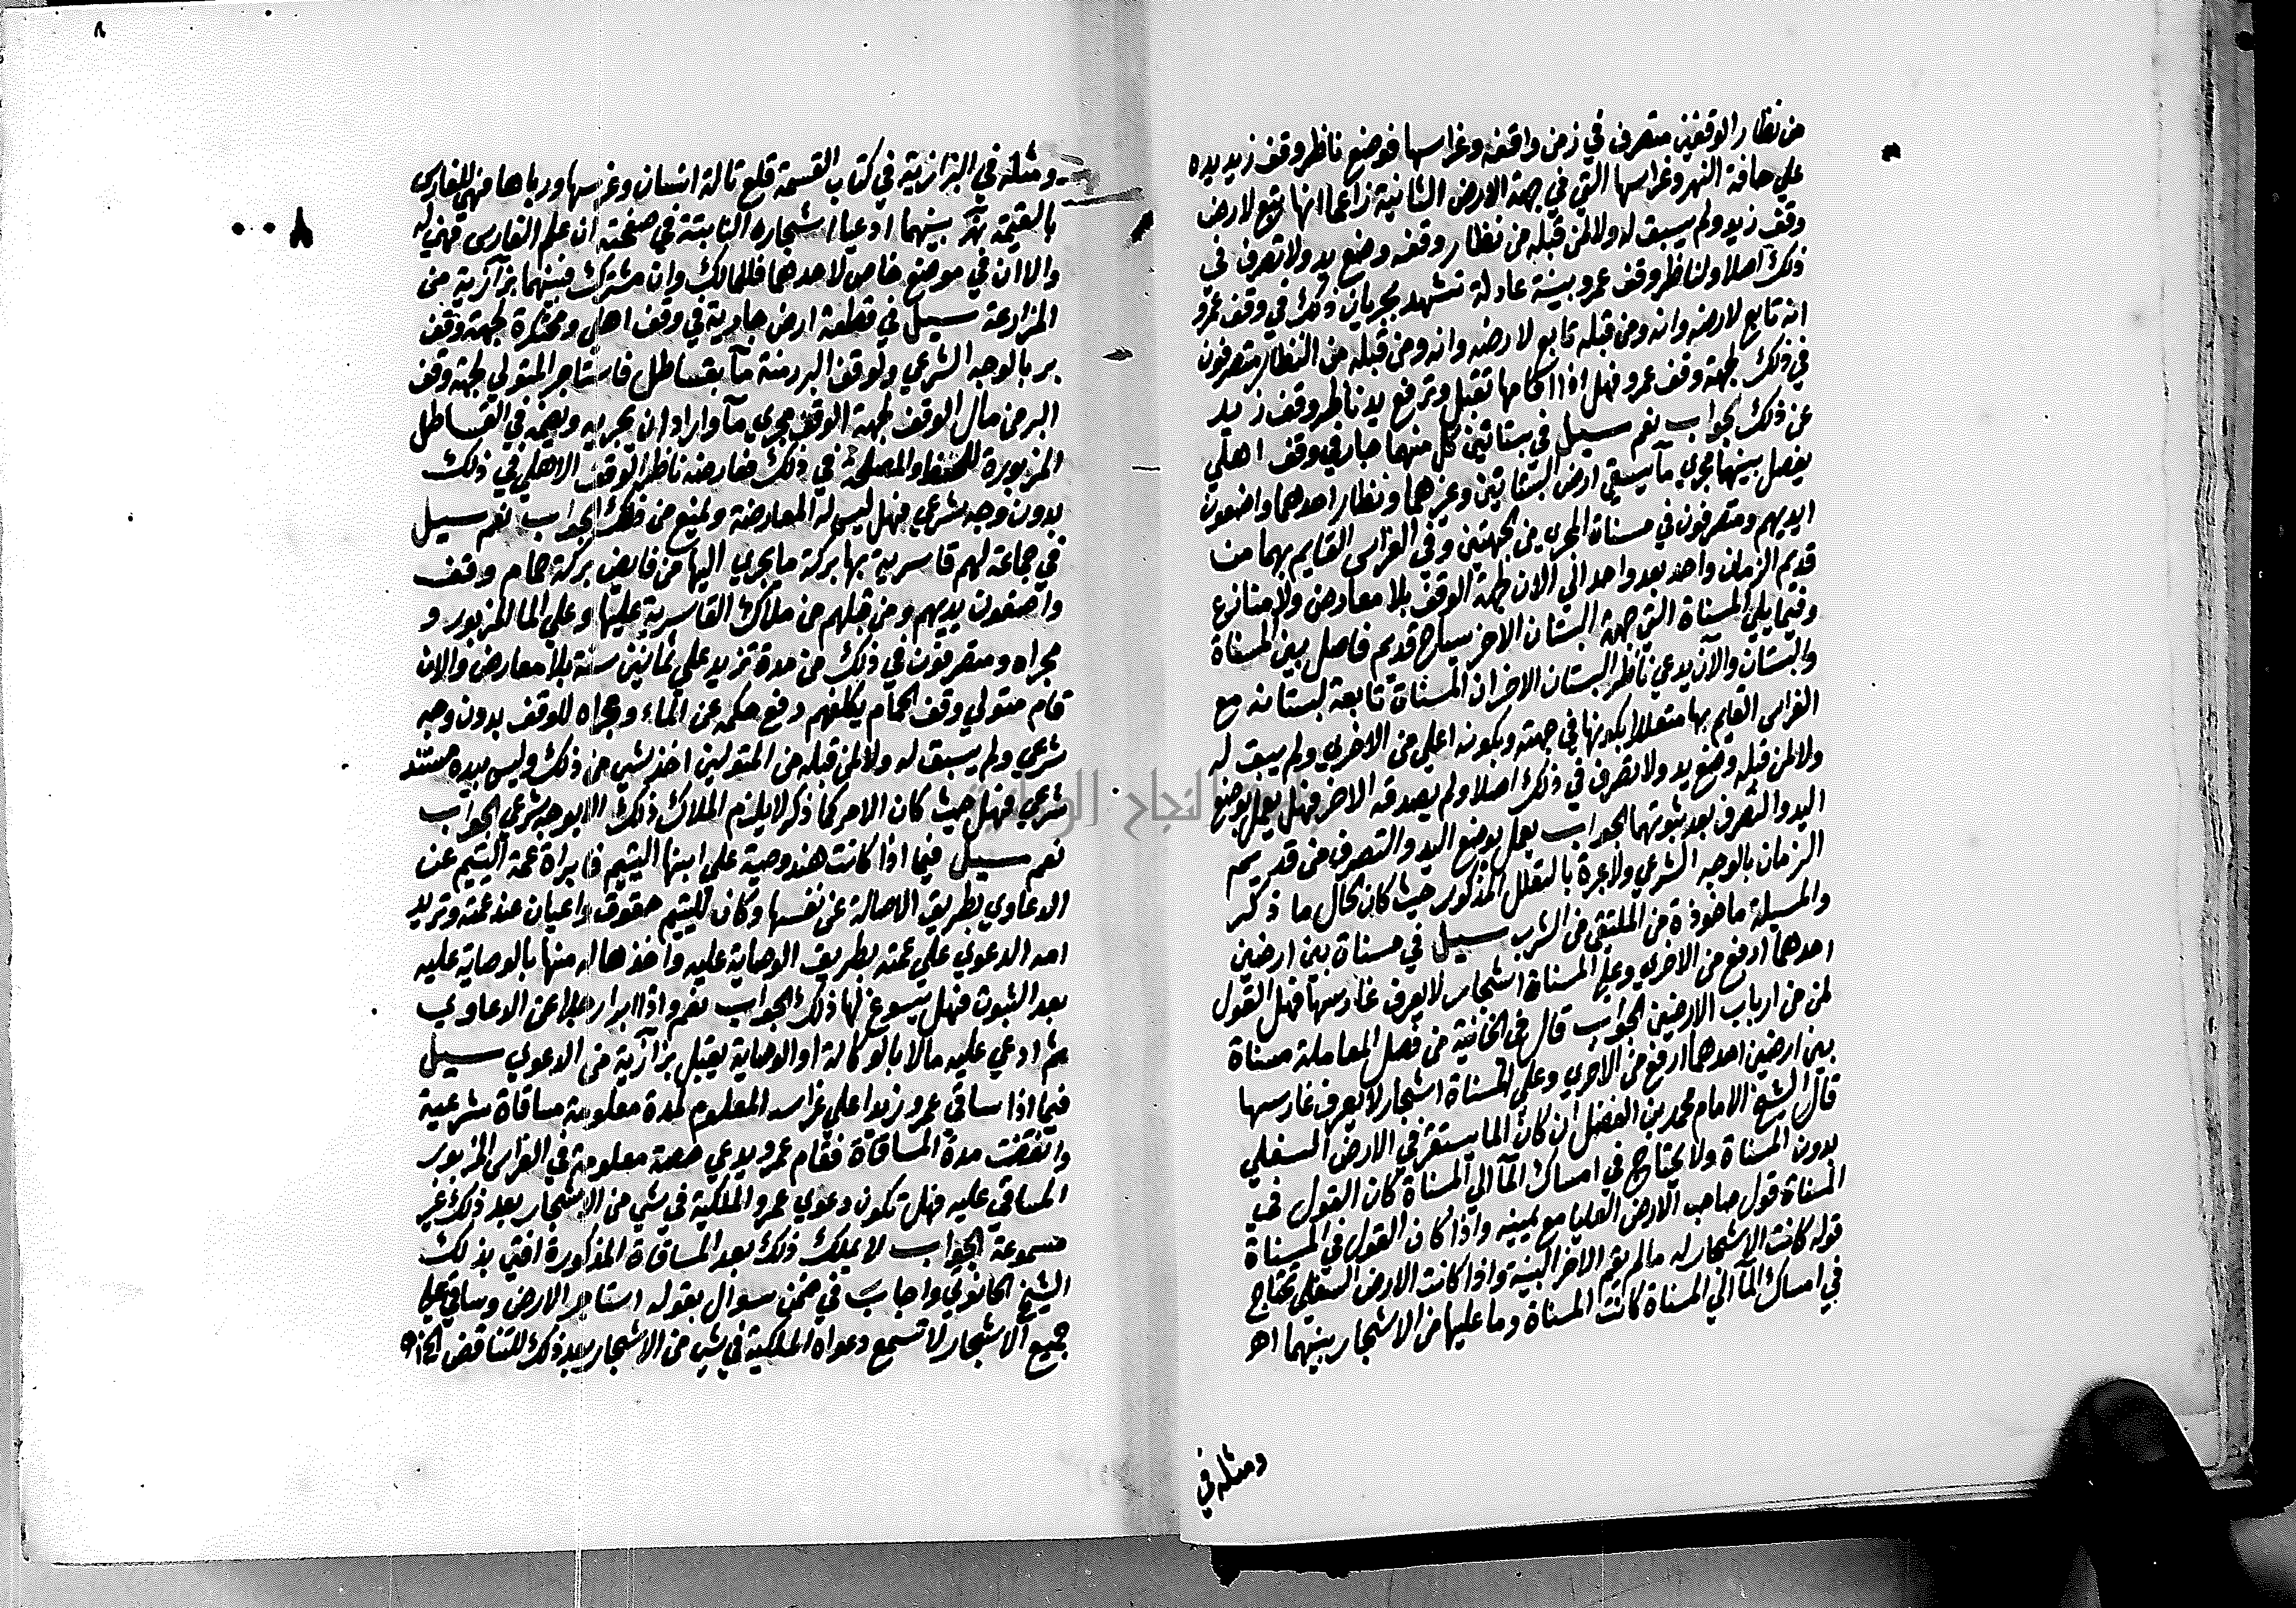 من نظار الوقفين متصرف في زمن واقفه وغراسها فوضع ناظر وقف زيد يده
علي حافة النهر وغراسها التي في جهة الارض الثانية زاعما انها تبع لارض
وقف زيد ولم يسبق له ولا لمن قبله من نظار وقفه وضع يد ولا تصرف في
ذلك اصلا ولناظر وقف عمرو بينة عادلة تشهد بجريان ذلك في وقف عمرو
انه تابع لارضه وانه ومن قبله تابع لارضه وانه ومن قبله من النظار متصرفون
في ذلك لجهة وقف عمرو فهل اذا اقامها تقبل وترفع يد ناظر وقف زيد
عن ذلك الجواب نعم سيل في بستانين كل منهما جار في وقف اهلي
يفصل بينهما مجري مآ يسقي ارض البستانين وغيرهما ونظار احدهما واضعون
ايديهم ومتصرفون في مسناة المجري من الجهتين وفي الغراس القايم بهما من
قديم الزمان واحد بعد واحد الي الان لجهة الوقف بلا معارض ولا منازع
وفيما يلي المسناة التي جهة البستان الاخر سياج قديم فاصل بين المسناة
والبستان والآن يدعي ناظر البستان الاخر ان المسناة تابعة لبستانه مع
الغراس القايم بها متعللا بكونها في جهته وبكونه اعلي من الاخري ولم يسبق له
ولا لمن قبله وضع يد ولا تصرف في ذلك اصلا ولم يصدقه الاخر فهل يعمل بوضع
اليد والتصرف بعد ثبوتهما الجواب يعمل بوضع اليد والتصرف من قديم
الزمان بالوجه الشرعي ولا عبرة بالتعلل المذكور حيث كان الحال ما ذكر
والمسيلة ماخوذة من الملتقي من الشرب سيل في مسناة بين ارضين
احدهما ارفع من الاخري وعلي المسناة اشجار لا يعرف غارسها فهل القول
لمن من ارباب الارضين الجواب قال في الخانية من فصل المعاملة مسناة
بين ارضين احدهما ارفع من الاخري وعلي المسناة اشجار لا يعرف غارسها
قال الشيخ الامام محمد بن الفضل ان كان الما يستقر في الارض السفلي
بدون المسناة ولا يحتاج في امساك المآ الي المسناة كان القول في
المسناة قول صاحب الارض العليا مع يمينه واذا كان القول في المسناة
قوله كانت الاشجار له مالم يقم الاخر البينة واذا كانت الارض السفلي تحتاج
في امساك المآ الي المسناة كانت المسناة وما عليها من الاشجار بينهما اهـ
ومثله في
٨
ومثله في البزازية في كتاب القسمة قلع تالة انسان وغرسها ورباها فهي للغارس
بالقيمة نهر بينهما ادعيا اشجاره النابتة في ضفته ان علم الغارس فهي له
والا ان في موضع خاص لاحدهما فللمالك وان مشترك فبينهما بزازية من
المزارعة سيل في قطعة ارض جارية في وقف اهلي ومحتكرة لجهة وقف
بر بالوجه الشرعي ولوقف البر منة مآ بقساطل فاستاجر المتولي لجهة وقف
البر من مال الوقف لجهة الوقف مجري مآ واراد ان يجريه ويضمه في القساطل
المزبورة للحظ والمصلحة في ذلك فعارضه ناظر الوقف الاهلي في ذلك
بدون وجه شرعي فهل ليس له المعارضة ويمنع من ذلك الجواب نعم سيل
في جماعة لهم قاسرية بها بركة ما يجري اليها من فايض بركة حمام وقف
واضعون يديهم ومن قبلهم من ملاك القاسرية عليها وعلي الما المزبور و
مجراه ومتصرفون في ذلك من مدة تزيد علي ثمانين سنة بلا معارض والان
قام متولي وقف الحمام يكلفهم دفع حكر عن المآء ومجراه للوقف بدون وجه
شرعي ولم يسبق له ولا لمن قبله من المتولين اخذ شي من ذلك وليس بيده مستند
شرعي فهل حيث كان الامر كما ذكر لا يلزم الملاك ذلك الا بوجه شرعي الجواب
نعم سيل فيما اذا كانت هند وصية علي ابنها اليتيم فابراة عمة اليتيم عن
الدعاوي بطريق الاصالة عن نفسها وكان لليتيم حقوق واعيان عند عمته وتريد
امه الدعوي علي عمته بطريق الوصاية عليه واخذها له منها بالوصاية عليه
بعد الثبوت فهل يسوغ لها ذلك الجواب نعم واذا ابرا رجلا عن الدعاوي
ثم ادعي عليه مالا بالوكالة او الوصاية يقبل بزازية من الدعوي سيل
فيما اذا ساقي عمرو زيدا علي غراسه المعلوم لمدة معلومة مساقاة شرعية
وانقضت مدة المساقاة فقام عمرو يدعي حصة معلومة في الغراس المزبور
المساقي عليه فهل تكون دعوي عمرو الملكية في شي من الاشجار بعد ذلك غير
مسموعة الجواب لا يملك ذلك بعد المساقاة المذكورة افتي بذلك
الشيخ الحانوتي واجاب في ضمن سوال بقوله استاجر الارض وساقي علي
جميع الاشجار لا تسمع دعواه الملكية في شي من الاشجار بعد ذلك للتناقض